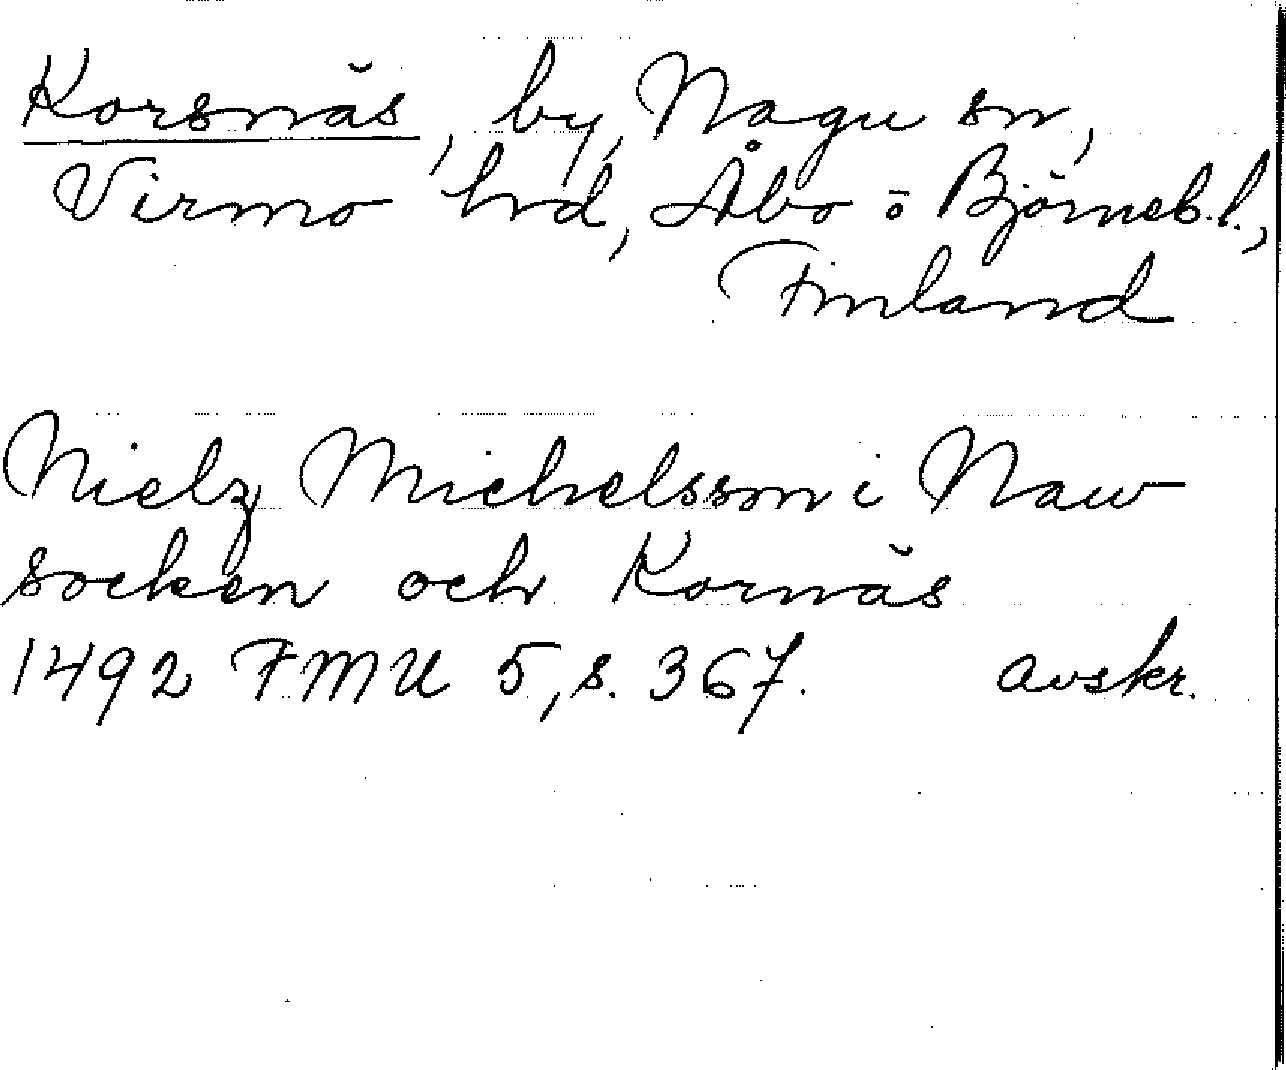 Korsnäs, by, Nagu sn,
Virmo hrd, Åbo o Björneb. l.,
Finland
Nielz Michelsson i Naw
socken och Kornäs
1492 FMU 5, s. 367. avskr.